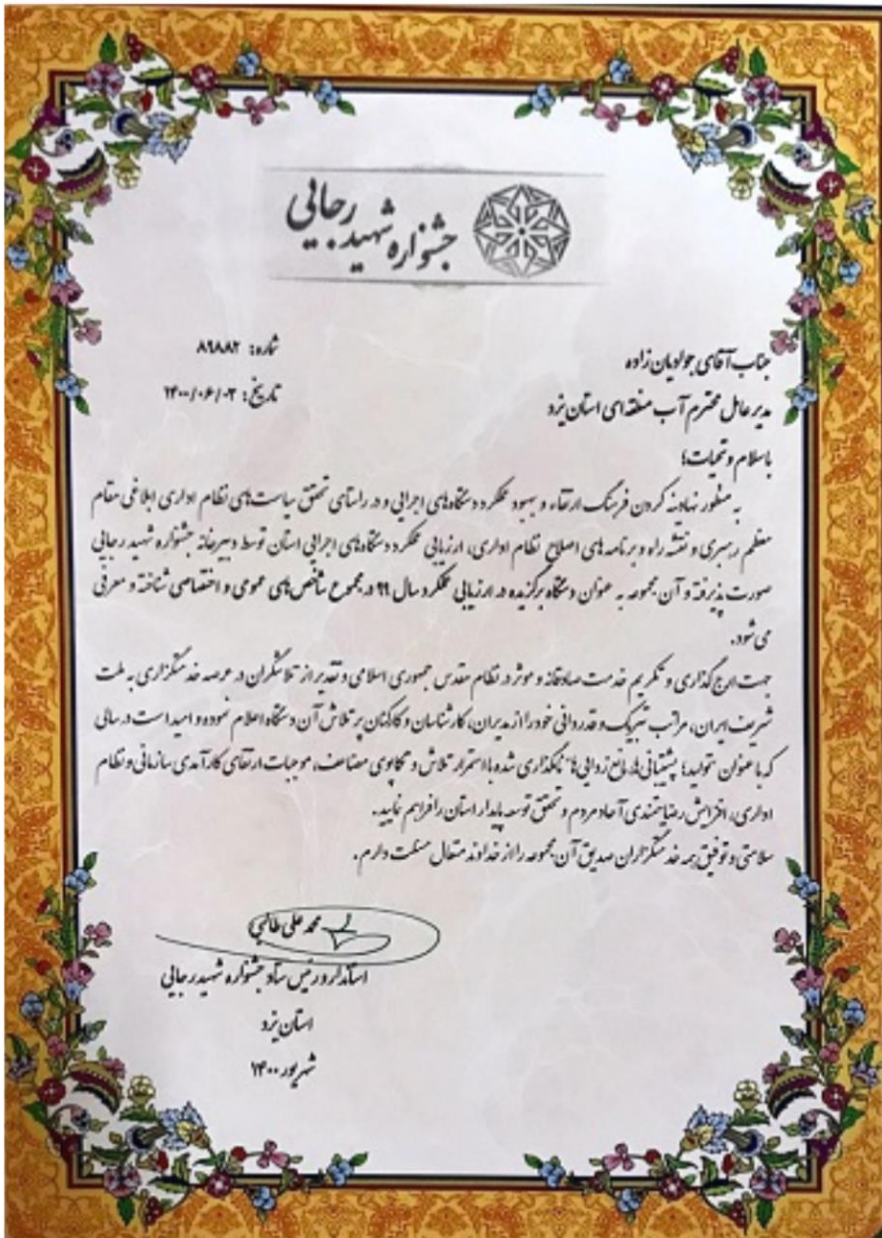 جشنواره شهید رجایی
شماره: ۸۹۸۸۲
تاریخ: ۱۴۰۰/۰۶/۰۲
جناب آقای جوادیان زاده
مدیر عامل محترم آب منطقه ای استان یزد
با سلام و تحیات؛
به منظور نهادینه کردن فرهنگ ارتقاء و بهبود عملکرد دستگاه‌های اجرایی و در راستای تحقق سیاست‌های نظام اداری ابلاغی مقام
معظم رهبری و نقشه راه و برنامه های اصلاح نظام اداری، ارزیابی عملکرد دستگاه‌های اجرایی استان توسط دبیرخانه جشنواره شهید رجایی
صورت پذیرفته و آن مجموعه به عنوان دستگاه برگزیده در ارزیابی عملکرد سال ۹۹ در مجموع شاخص‌های عمومی و اختصاصی شناخته و معرفی
می شود.
جهت ارج گذاری و تکریم خدمت صادقانه و موثر در نظام مقدس جمهوری اسلامی و تقدیر از تلاشگران در عرصه خدمتگزاری به ملت
شریف ایران، مراتب تبریک و قدردانی خود را از مدیران، کارشناسان و کارکنان پر تلاش آن دستگاه اعلام نموده و امید است در سالی
که با عنوان "تولید؛ پشتیبانی‌ها، مانع زدایی‌ها" نامگذاری شده با استمرار تلاش و تکاپوی مضاعف، موجبات ارتقای کارآمدی سازمانی و نظام
اداری، افزایش رضایتمندی آحاد مردم و تحقق توسعه پایدار استان را فراهم نمایید.
سلامتی و توفیق همه خدمتگزاران صدیق آن مجموعه را از خداوند متعال مسئلت دارم.
محمد علی طالبی
استاندار و رئیس ستاد جشنواره شهید رجایی
استان یزد
شهریور ۱۴۰۰